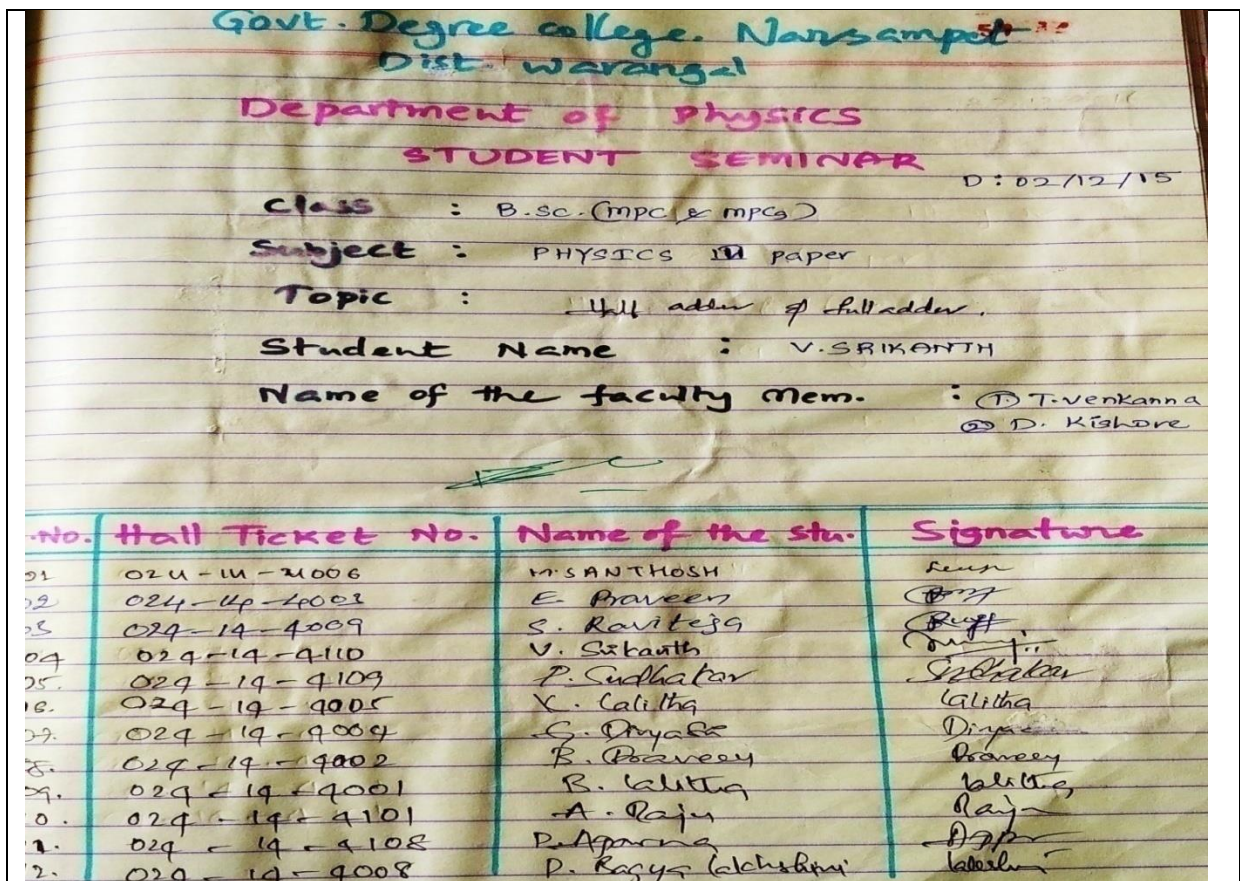 Govt. Degree college. Narsampet
Dist. Warangal
Department of Physics
STUDENT SEMINAR
D: 02/12/15
Class : B.Sc. (MPC & MPCs)
Subject : PHYSICS paper
Topic : Half adder & full adder.
Student Name : V. SRIKANTH
Name of the faculty Mem. : ① T. Venkanna
② D. Kishore
.No. Hall Ticket No. Name of the stu. Signature
01 024-14-4006 M. SANTHOSH
02 024-14-4003 E. Praveen
03 024-14-4009 S. Raviteja
04 024-14-4110 V. Srikanth
05. 024-14-4109 P. Sudhakar Sudhakar
6. 024-14-4005 K. Lalitha Lalitha
07. 024-14-4004 G. Divya
8. 024-14-4002 B. Praveen Praveen
09. 024-14-4001 B. Lalitha Lalitha
0. 024-14-4101 A. Raju Raju
1. 024-14-4108 P. Aparna
2. 024-14-4008 D.